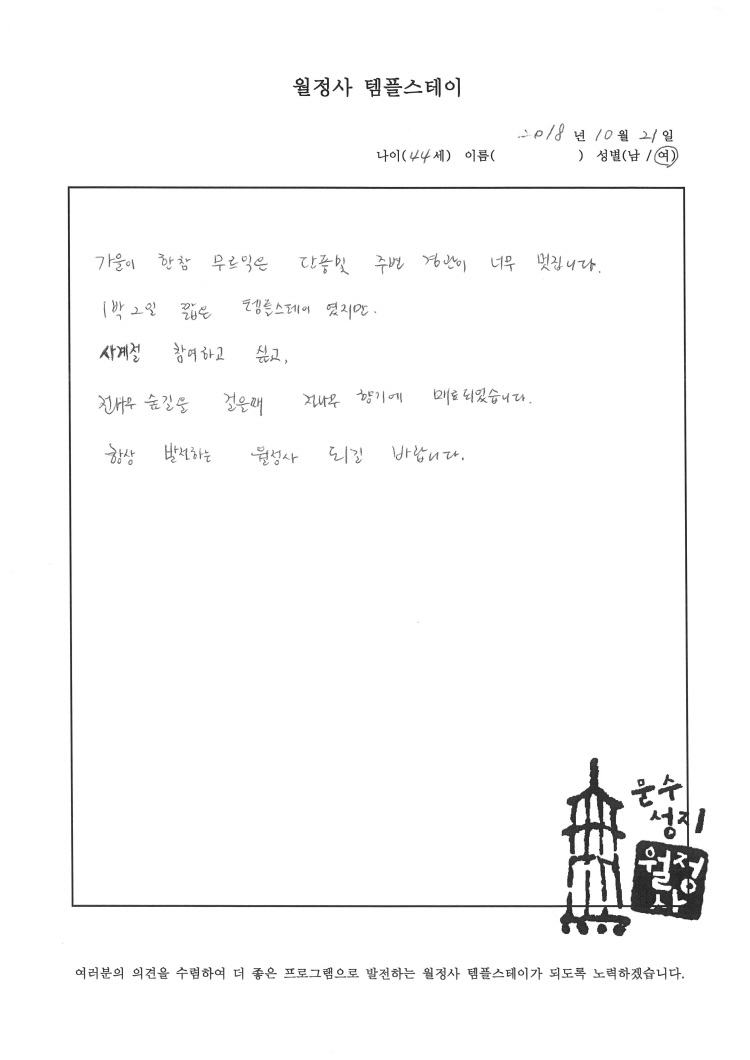 월정사 템플스테이
2018 년 10 월 21 일
나이(44세) 이름( ) 성별(남 / 여)
가을이 한참 무르익은 단풍빛 주변 경관이 너무 멋집니다.
1박 2일 짧은 템플스테이 였지만.
사계절 참여하고 싶고,
전나무 숲길을 걸을때 전나무 향기에 매료되었습니다.
항상 발전하는 월정사 되길 바랍니다.
문수
성지
월정
사
여러분의 의견을 수렴하여 더 좋은 프로그램으로 발전하는 월정사 템플스테이가 되도록 노력하겠습니다.